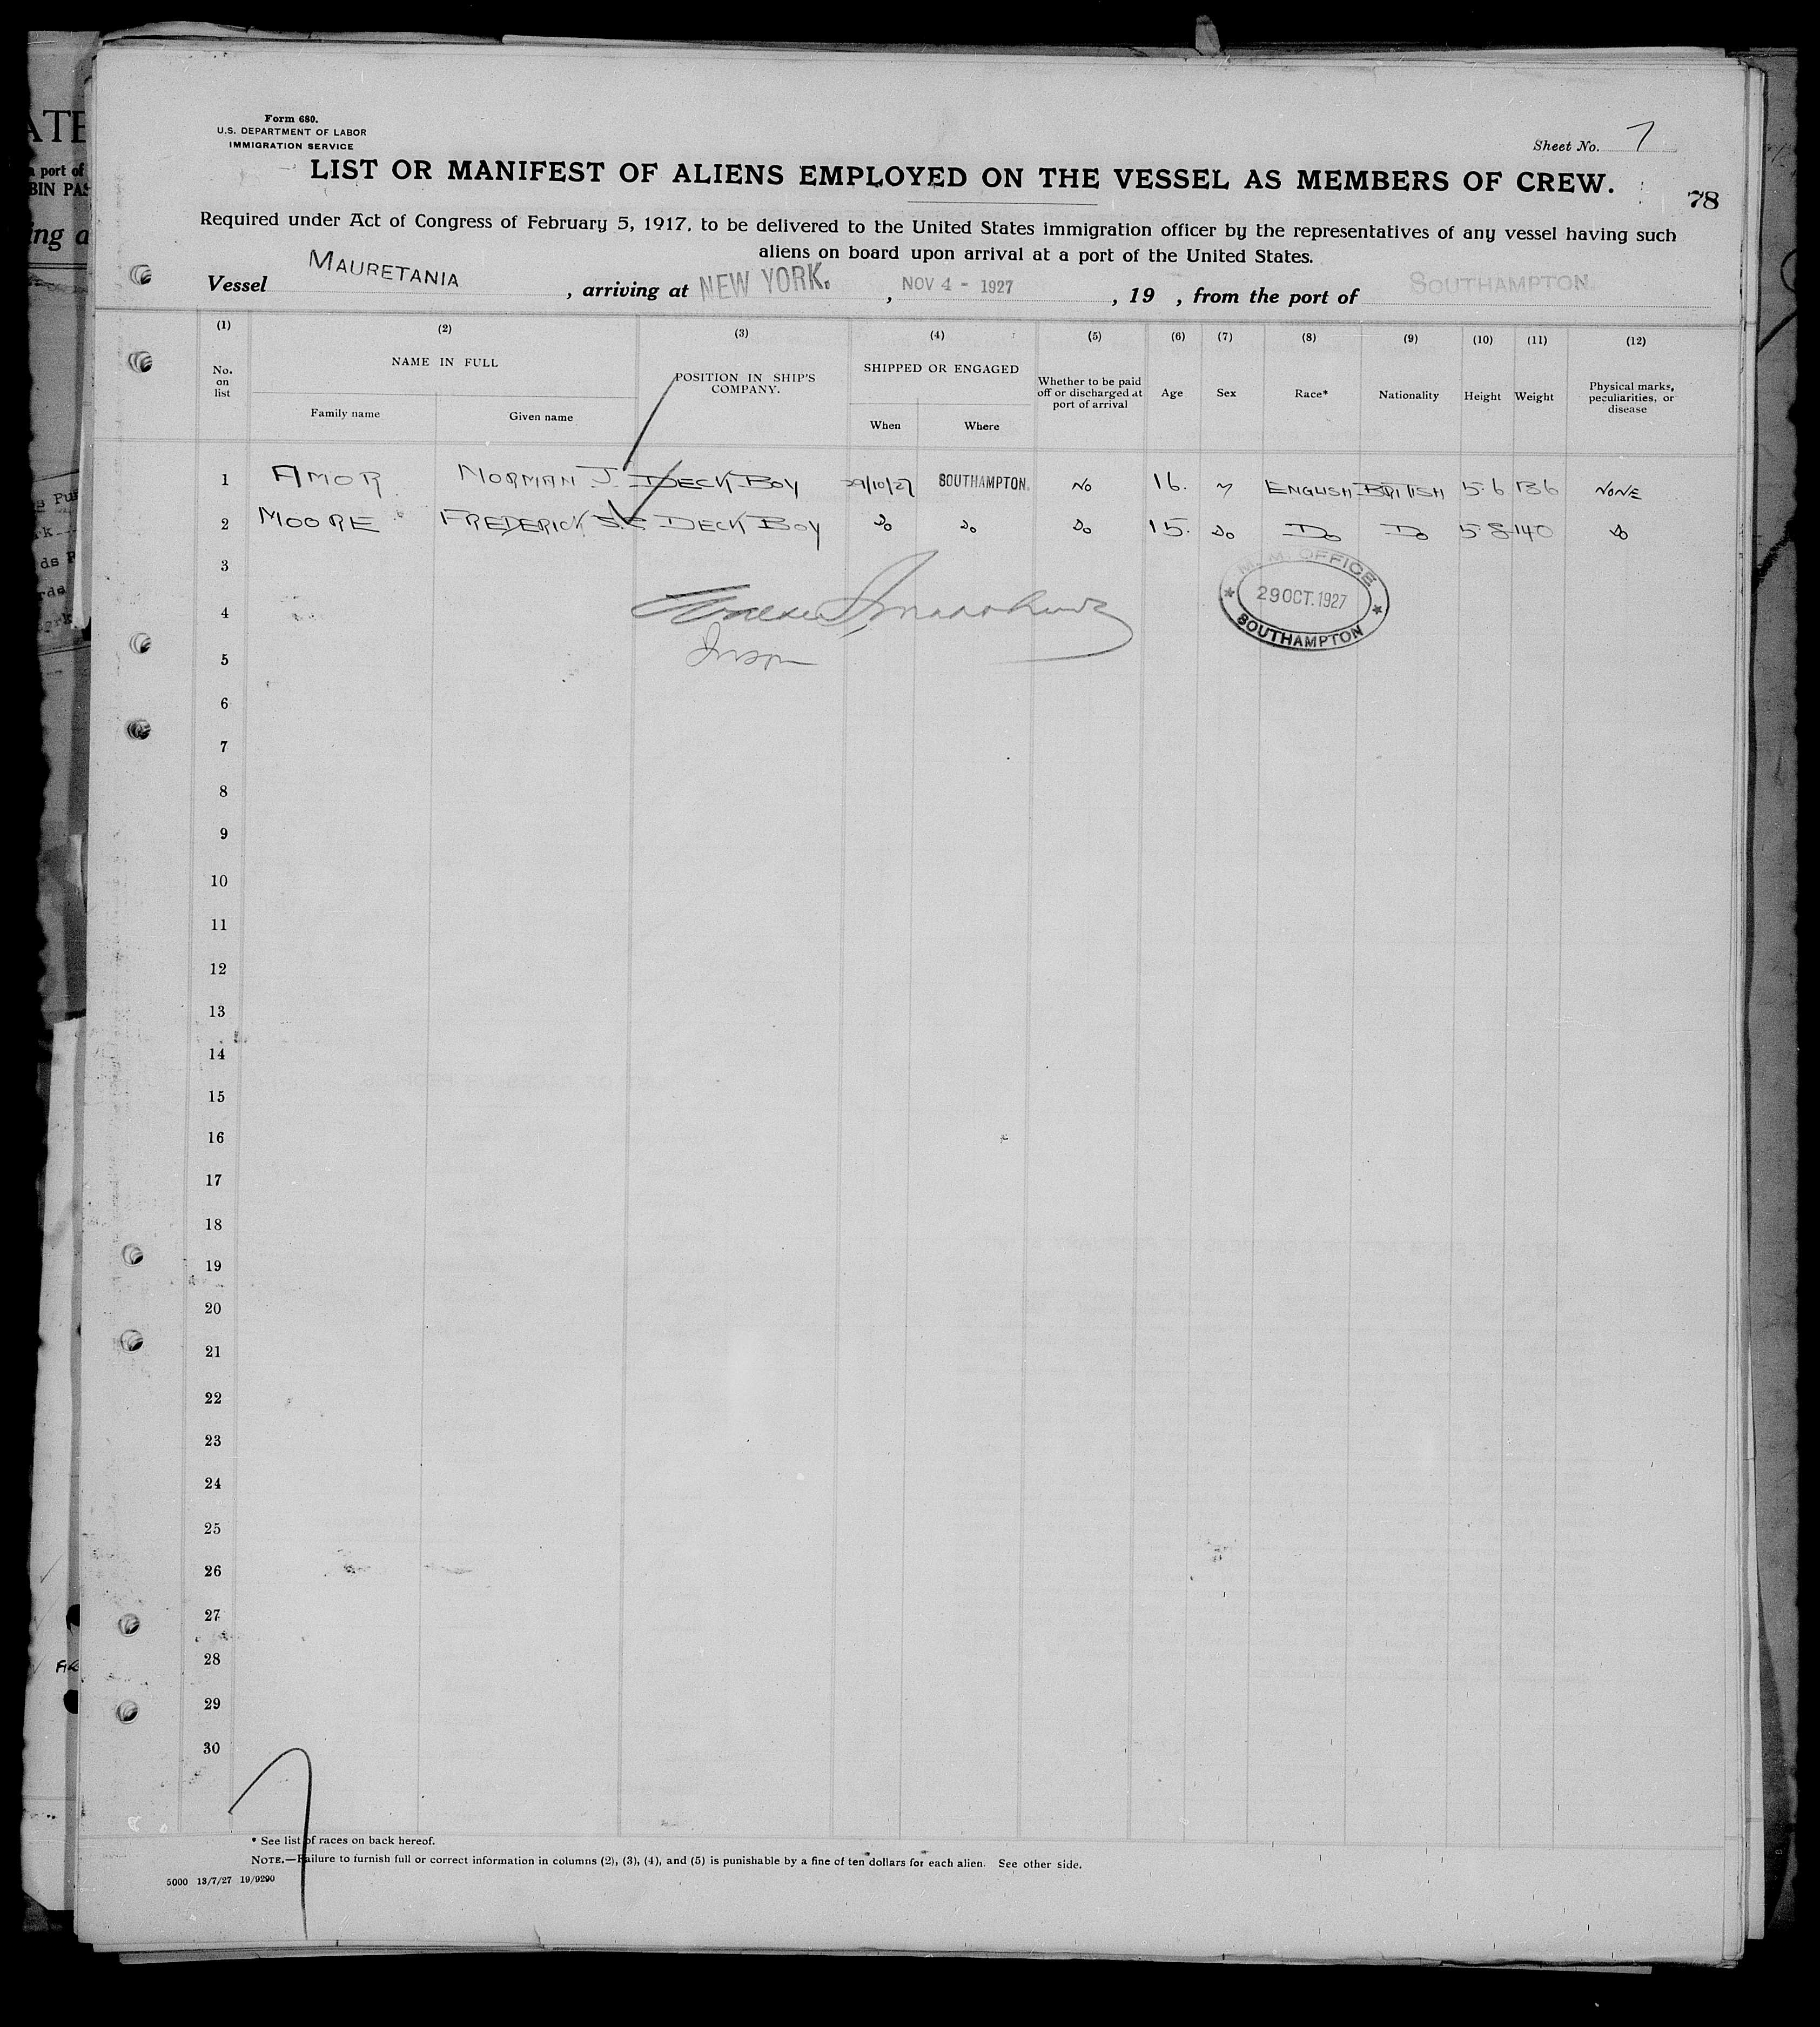 Form 680.
U.S. DEPARTMENT OF LABOR
IMMIGRATION SERVICE
Sheet No. 7
LIST OR MANIFEST OF ALIENS EMPLOYED ON THE VESSEL AS MEMBERS OF CREW.
78
Required under Act of Congress of February 5, 1917, to be delivered to the United States immigration officer by the representatives of any vessel having such
aliens on board upon arrival at a port of the United States.
Vessel MAURETANIA, arriving at NEW YORK., NOV 4 - 1927, 19 , from the port of SOUTHAMPTON.
(1) (2) (3) (4) (5) (6) (7) (8) (9) (10) (11) (12)
No. on list
NAME IN FULL
Family name
Given name
POSITION IN SHIP'S COMPANY.
SHIPPED OR ENGAGED
When
Where
Whether to be paid off or discharged at port of arrival
Age
Sex
Race*
Nationality
Height
Weight
Physical marks, peculiarities, or disease
1 AMOR NORMAN J. DECK BOY 29/10/27 SOUTHAMPTON. NO 16. M ENGLISH BRITISH 5.6 136 NONE
2 MOORE FREDERICK DECK BOY Do Do Do 15. Do Do Do 5.8 140 Do
3
4
5
M.M. OFFICE
29 OCT. 1927
SOUTHAMPTON
6
7
8
9
10
11
12
13
14
15
16
17
18
19
20
21
22
23
24
25
26
27
28
29
30
* See list of races on back hereof.
NOTE.—Failure to furnish full or correct information in columns (2), (3), (4), and (5) is punishable by a fine of ten dollars for each alien. See other side.
5000 13/7/27 19/9290